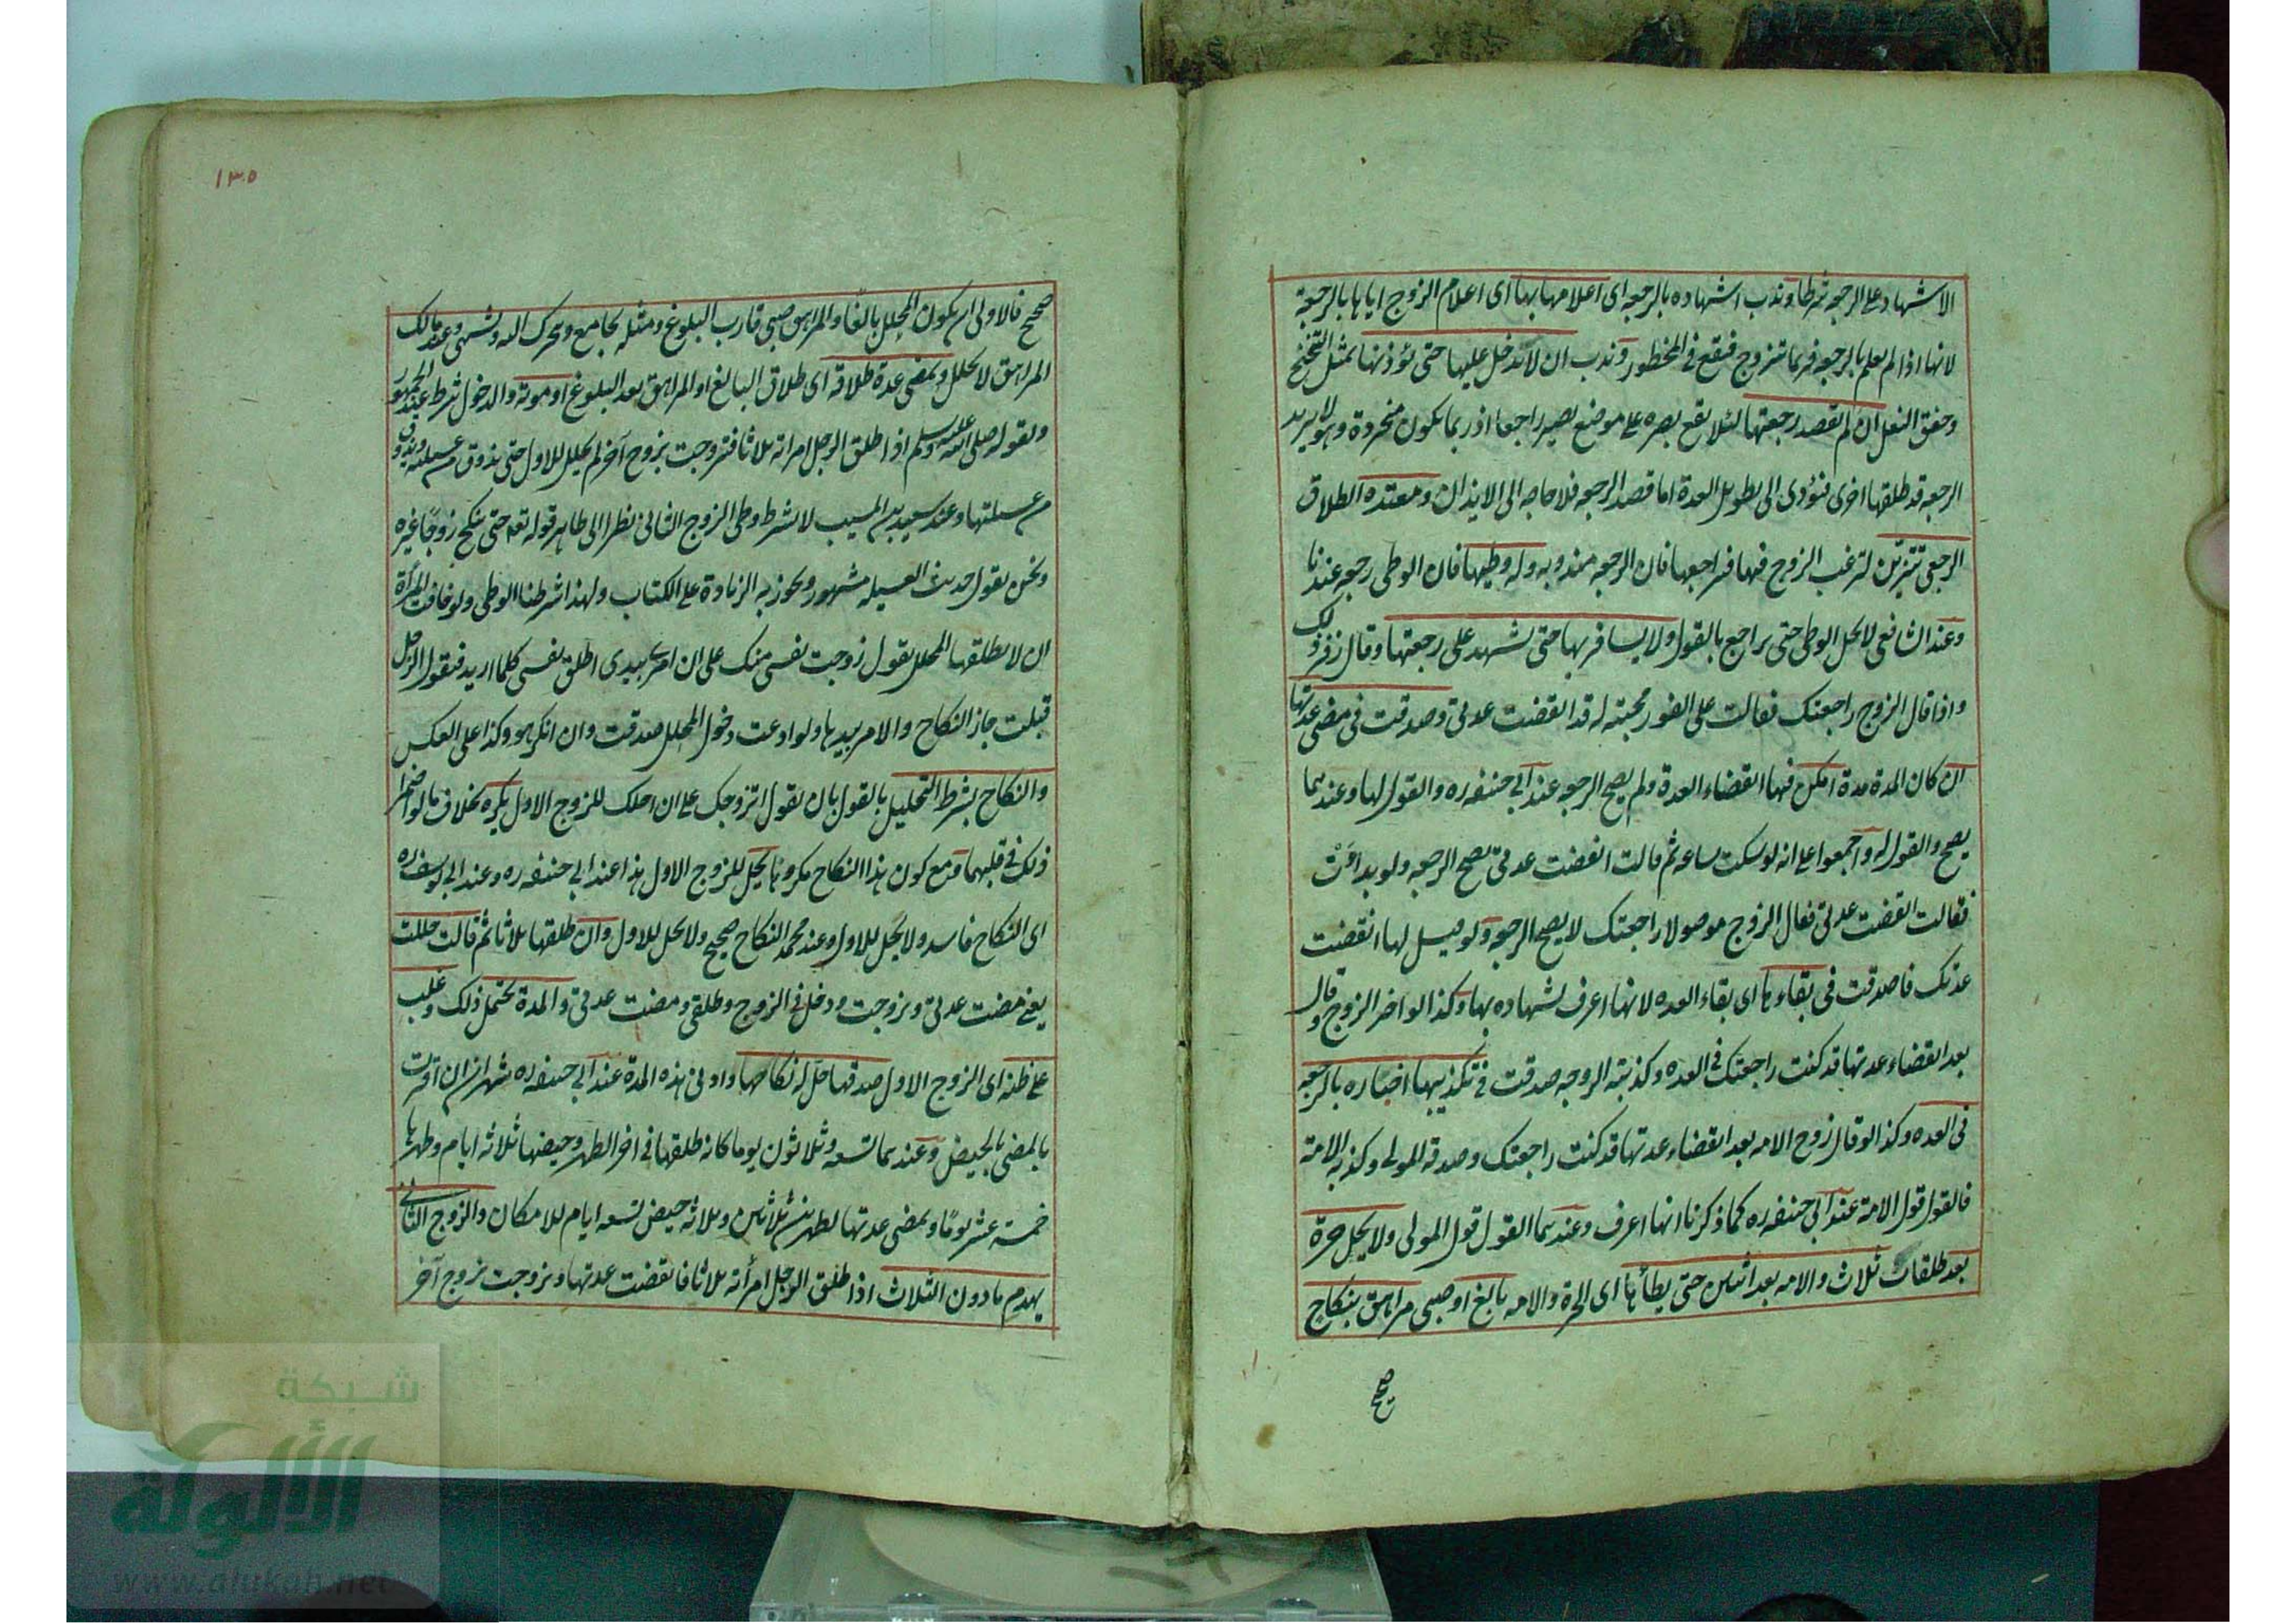 الاشهاد على الرجعه شرطا وندب اشهاده بالرجعه اى اعلامها بها اى اعلام الزوج اياها بالرجعة
لانها اذا لم يعلم بالرجعه فربما تتزوج فتقع فى المخطور وندب ان لا يدخل عليها حتى يؤذنها بمثل التنخنح
وخفق النعل ان لم يقصد رجعتها لئلا يقع بصره على موضع يصير راجعا اذ ربما يكون متجردة وهو لا يريد
الرجعه فد طلقها اخرى فتؤدى الى تطويل العدة اما قصد الرجعه فلا حاجه الى الايذان ومعتدة الطلاق
الرجعى تتزين لترغب الزوج فيها فيراجعها فان الرجعه مندوبه وله وطيها فان الوطى رجعه عندنا
وعند الشافعى لا يحل الوطى حتى يراجع بالقول ولا يسافر بها حتى يشهد على رجعتها وقال زفر له ذلك
واذا قال الزوج راجعتك فقالت على الفور مجيبة له قد انقضت عدتى وصدقت فى مضى عدتها
ان كان المدة مدة امكن فيها انقضاء العدة ولم يصح الرجعه عند ابى حنيفه ره والقول لها وعندهما
يصح والقول له واجمعوا على انه لو سكت ساعه ثم قالت انقضت عدتى يصح الرجعه ولو بداءت
فقالت انقضت عدتى فقال الزوج موصولا راجعتك لا يصح الرجعه ولو قيل لها انقضت
عدتك فاصدقت فى بقاءها اى بقاء العده لانها اعرف بشهاده بها وكذا لو اخر الزوج وقال
بعد انقضاء عدتها قد كنت راجعتك فى العده وكذبته الزوجه صدقت فى تكذيبها اخباره بالرجعه
فى العده وكذا لو قال زوج الامه بعد انقضاء عدتها قد كنت راجعتك وصدقه المولى وكذبه الامة
فالقول قول الامة عند ابى حنيفه ره كما ذكرنا انها اعرف وعندهما القول قول المولى ولا يحل حرة
بعد طلقات ثلاث والامه بعد اثنين حتى يطأها اى الحرة والامه بالغ او صبى مراهق بنكاح
صحيح
١٣٥
صحيح فالاولى ان يكون المحلل بالغا والمراهق صبى قارب البلوغ ومثله يجامع ويتحرك آلته ويشتهى وعند مالك
المراهق لا يحلل ويمضى عدة طلاقه اى طلاق البالغ او المراهق بعد البلوغ او موته والدخول شرط عند الجمهور
ولقوله صلى الله عليه وسلم اذا طلق الرجل امراته ثلاثا فتزوجت بزوج آخر لم يحلل للاول حتى يذوق من عسيلته ويذوق
من عسيلتها وعند سعيد بن المسيب لا يشرط وطى الزوج الثانى نظرا الى ظاهر قوله تعه حتى تنكح زوجا غيره
ونحن نقول حديث العسيله مشهور ويجوز به الزيادة على الكتاب ولهذا شرطنا الوطى ولو خافت المرأة
ان لا يطلقها المحلل يقول زوجت نفسى منك على ان امرى بيدى اطلق نفسى كلما اريد فيقول الرجل
قبلت جاز النكاح والامر بيدها ولو ادعت دخول المحلل صدقت وان انكر هو وكذا على العكس
والنكاح بشرط التحليل بالقول بان يقول اتزوجك على ان احلك للزوج الاول يكره بخلاف ما لو اضمرا
ذلك فى قلبهما ومع كون هذا النكاح مكروها يحل للزوج الاول هذا عند ابى حنيفه ره وعند ابى يوسف ره
اى النكاح فاسد ولا يحل للاول وعند محمد النكاح صحيح ولا يحل للاول وان طلقها ثلاثا ثم قالت حللت
يعنى مضت عدتى وتزوجت ودخل فى الزوج وطلقى ومضت عدتى والمدة يحتمل ذلك وغلب
على ظنه اى الزوج الاول صدقها حل له نكاحها وادنى هذه المدة عند ابى حنيفه ره شهران ان اقرت
بالمضى بالحيض وعندهما تسعه وثلاثون يوما كانه طلقها فى اخر الطهر وحيضها ثلاثه ايام وطهرها
خمسة عشر يوما ويمضى عدتها بطهرين ثلاثين وثلاثه حيض تسعه ايام للامكان والزوج الثانى
يهدم ما دون الثلاث اذا طلق الرجل امرأته ثلاثا فانقضت عدتها وتزوجت بزوج آخر
شبكة
الألوكة
www.alukah.net